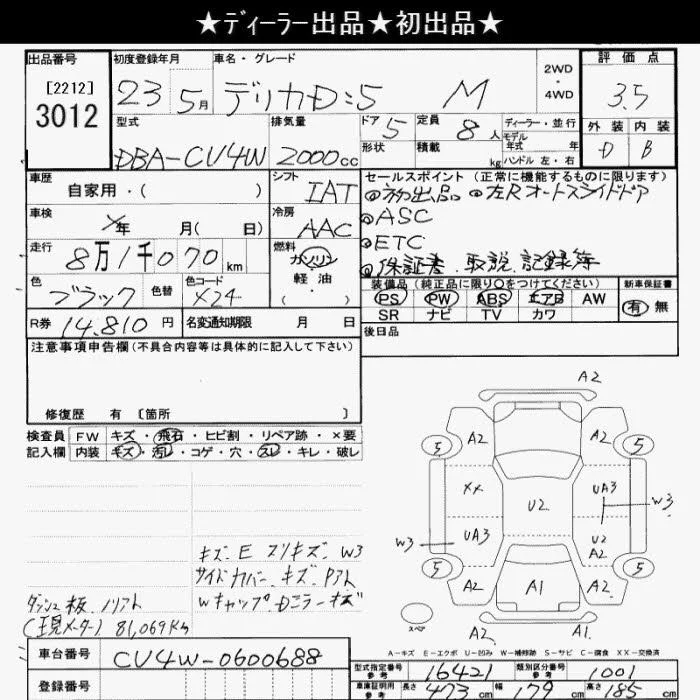 ★ディーラー出品★初出品★
出品番号 初度登録年月 車名・グレード 評価点
[2212]
3012
23 5月 デリカD:5 M 2WD ・ 4WD 3.5
型式 排気量 ドア 5 定員 8人 ディーラー・並行 外装 内装
DBA-CV4W 2000cc 形状 積載 kg モデル年式 年式 ハンドル 左・右 D B
車歴 シフト セールスポイント(正常に機能するものに限ります)
自家用・( ) IAT ◎初出品 ◎左Rオートスライドドア
車検 冷房 ◎ASC
年 月( 日) AAC ◎ETC
走行 燃料 ◎保証書.取説.記録簿
8万1千070km ガソリン 軽油 ( )
色 色替 色コード 装備品(純正品に限り○をつけてください) 新車保証書
ブラック X24 PS PW ABS エアB AW 有 無
SR ナビ TV カワ
R券 14,810円 名変通知期限 月 日 後日品
注意事項申告欄(不具合内容等は具体的に記入して下さい)
修復歴 有 〔箇所 〕
検査員 FW キズ・飛石・ヒビ割・リペア跡・×要
記入欄 内装 キズ・汚レ・コゲ・穴・スレ・キレ・破レ
A2
5 A2 A2 5
XX U2 UA3 W3
W3 UA3 U2
A2
5 A2 A1 A2 5
スペア A2 A1
キズ.E スリキズ.W3
サイドカバー.キズ.Pアト
Wキャップ.Dミラーキズ
ダッシュ板.ノリアト
(現メーター) 81,069Km
A-キズ E-エクボ U-凹み W-補修跡 S-サビ C-腐食 XX-交換済
車台番号 CV4W-0600688
登録番号
型式指定番号 参考 16421 類別区分番号 参考 1001
車庫証明用 参考 長さ 473cm 幅 179cm 高さ 185cm